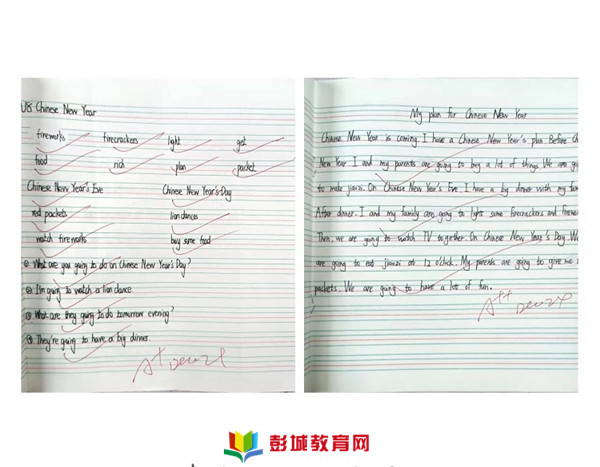 U8 Chinese New Year
fireworks firecrackers light get
food rich plan packet
Chinese New Year's Eve Chinese New Year's Day
red packets lion dances
watch fireworks buy some food
①. What are you going to do on Chinese New Year's Day?
②. I'm going to watch a lion dance.
③. What are they going to do tomorrow evening?
④. They're going to have a big dinner.
A+
My plan for Chinese New Year
Chinese New Year is coming. I have a Chinese New Year's plan. Before
New Year I and my parents are going to buy a lot of things. We are
to make jiaozi. On Chinese New Year's Eve I have a big dinner with my
After dinner. I and my family are going to light some firecrackers and
Then, we are going to watch TV together. On Chinese New Year's Day.
are going to eat jiaozi at 12 o'clock. My parents are going to give me
packets. We are going to have a lot of fun.
A++
彭城教育网